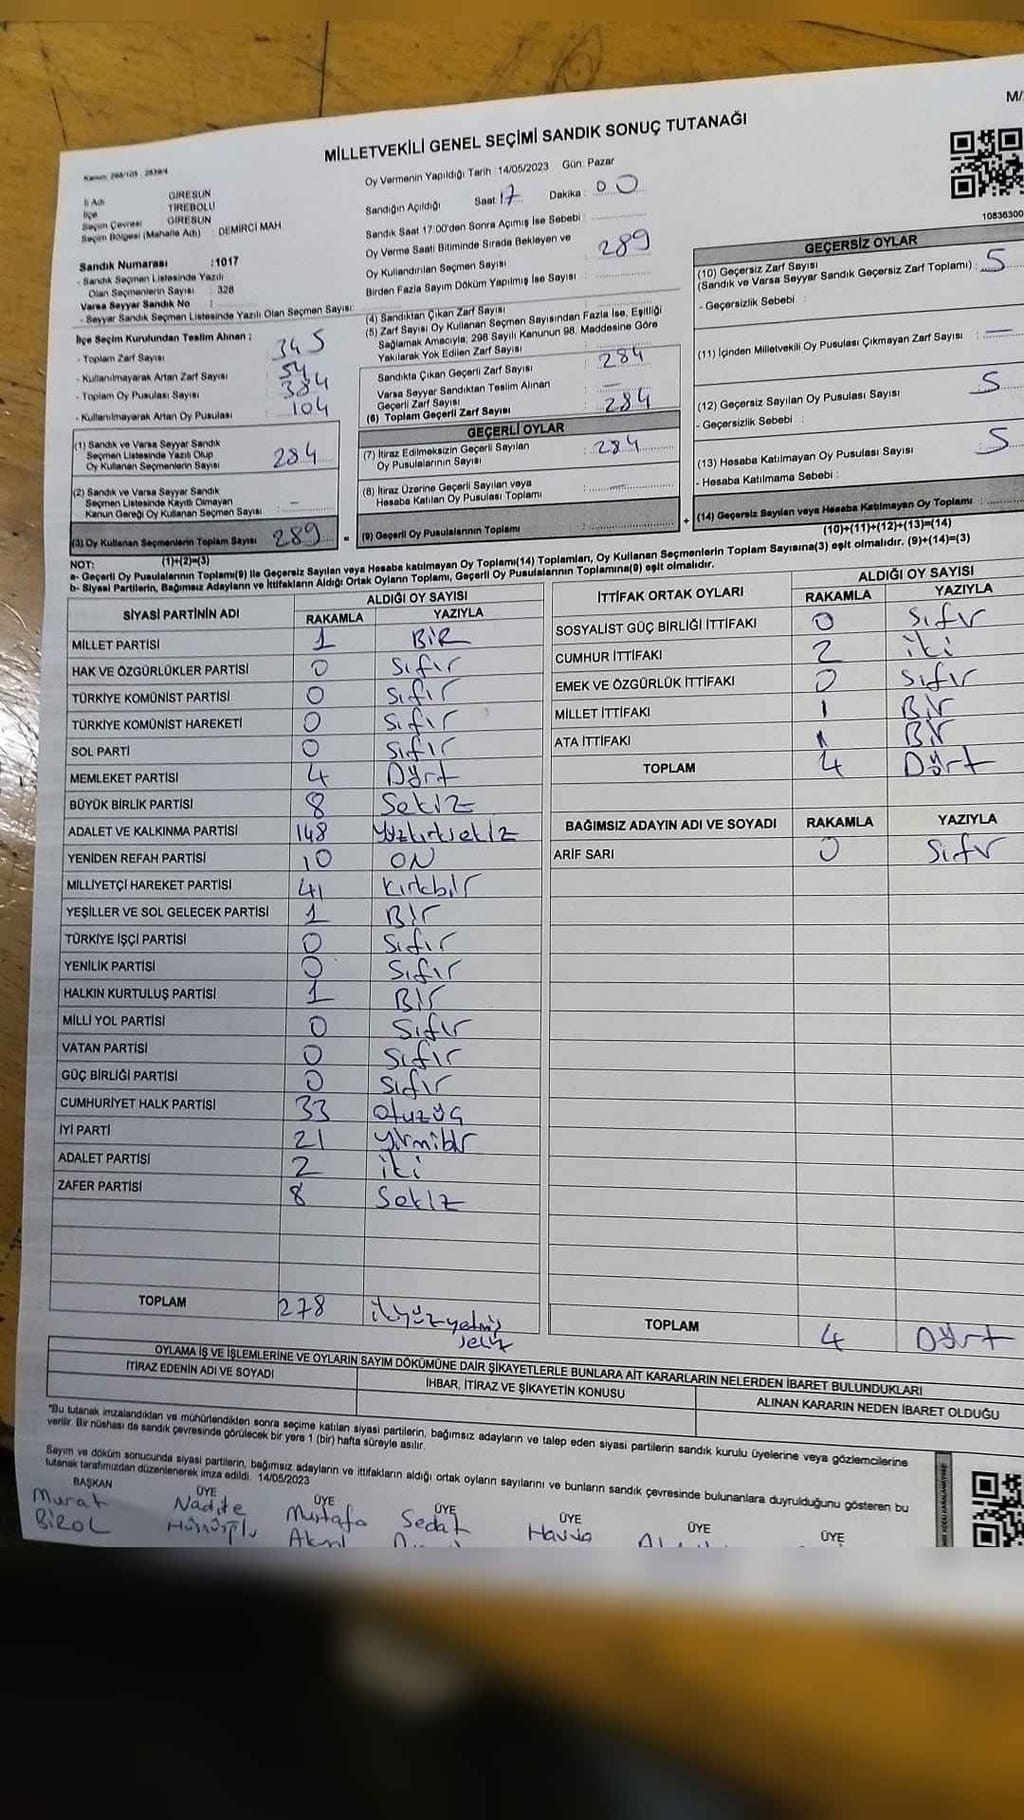 M/
MİLLETVEKİLİ GENEL SEÇİMİ SANDIK SONUÇ TUTANAĞI
İl Adı : GİRESUN
İlçe : TİREBOLU
Seçim Çevresi : GİRESUN
Seçim Bölgesi (Mahalle Adı) : DEMİRCİ MAH
Sandık Numarası :1017
- Sandık Seçmen Listesinde Yazılı
Olan Seçmenlerin Sayısı : 328
Varsa Seyyar Sandık No :
- Seyyar Sandık Seçmen Listesinde Yazılı Olan Seçmen Sayısı:
Oy Vermenin Yapıldığı Tarih :14/05/2023 Gün: Pazar
Sandığın Açıldığı Saat : 17 Dakika : 00
Sandık Saat 17:00'den Sonra Açımış İse Sebebi :
Oy Verme Saati Bitiminde Sırada Bekleyen ve
Oy Kullandırılan Seçmen Sayısı : 289
Birden Fazla Sayım Döküm Yapılmış İse Sayısı :
10836300
İlçe Seçim Kurulundan Teslim Alınan ;
- Toplam Zarf Sayısı : 345
- Kullanılmayarak Artan Zarf Sayısı : 54
- Toplam Oy Pusulası Sayısı : 384
- Kullanılmayarak Artan Oy Pusulası : 104
(1) Sandık ve Varsa Seyyar Sandık
Seçmen Listesinde Yazılı Olup
Oy Kullanan Seçmenlerin Sayısı : 284
(2) Sandık ve Varsa Seyyar Sandık
Seçmen Listesinde Kayıtlı Olmayan
Kanun Gereği Oy Kullanan Seçmen Sayısı : –
(3) Oy Kullanan Seçmenlerin Toplam Sayısı : 289
(1)+(2)=(3)
(4) Sandıktan Çıkan Zarf Sayısı
(5) Zarf Sayısı Oy Kullanan Seçmen Sayısından Fazla İse, Eşitliği
Sağlamak Amacıyla, 298 Sayılı Kanunun 98. Maddesine Göre
Yakılarak Yok Edilen Zarf Sayısı
Sandıkta Çıkan Geçerli Zarf Sayısı : 284
Varsa Seyyar Sandıktan Teslim Alınan
Geçerli Zarf Sayısı : –
(6) Toplam Geçerli Zarf Sayısı : 284
GEÇERLİ OYLAR
(7) İtiraz Edilmeksizin Geçerli Sayılan
Oy Pusulalarının Sayısı : 284
(8) İtiraz Üzerine Geçerli Sayılan veya
Hesaba Katılan Oy Pusulası Toplamı : –
= (9) Geçerli Oy Pusulalarının Toplamı :
GEÇERSİZ OYLAR
(10) Geçersiz Zarf Sayısı
(Sandık ve Varsa Seyyar Sandık Geçersiz Zarf Toplamı) : 5
- Geçersizlik Sebebi :
(11) İçinden Milletvekili Oy Pusulası Çıkmayan Zarf Sayısı : –
(12) Geçersiz Sayılan Oy Pusulası Sayısı : 5
- Geçersizlik Sebebi :
(13) Hesaba Katılmayan Oy Pusulası Sayısı : 5
- Hesaba Katılmama Sebebi :
+ (14) Geçersiz Sayılan veya Hesaba Katılmayan Oy Toplamı :
(10)+(11)+(12)+(13)=(14)
NOT:
a- Geçerli Oy Pusulalarının Toplamı(9) ile Geçersiz Sayılan veya Hesaba katılmayan Oy Toplamı(14) Toplamları, Oy Kullanan Seçmenlerin Toplam Sayısına(3) eşit olmalıdır. (9)+(14)=(3)
b- Siyasi Partilerin, Bağımsız Adayların ve İttifakların Aldığı Ortak Oyların Toplamı, Geçerli Oy Pusulalarının Toplamına(9) eşit olmalıdır.
SİYASİ PARTİNİN ADI ALDIĞI OY SAYISI
RAKAMLA YAZIYLA
MİLLET PARTİSİ 1 BİR
HAK VE ÖZGÜRLÜKLER PARTİSİ 0 Sıfır
TÜRKİYE KOMÜNİST PARTİSİ 0 Sıfır
TÜRKİYE KOMÜNİST HAREKETİ 0 Sıfır
SOL PARTİ 0 Sıfır
MEMLEKET PARTİSİ 4 Dört
BÜYÜK BİRLİK PARTİSİ 8 Sekiz
ADALET VE KALKINMA PARTİSİ 148 Yüzkırksekiz
YENİDEN REFAH PARTİSİ 10 ON
MİLLİYETÇİ HAREKET PARTİSİ 41 Kırkbir
YEŞİLLER VE SOL GELECEK PARTİSİ 1 Bir
TÜRKİYE İŞÇİ PARTİSİ 0 Sıfır
YENİLİK PARTİSİ 0 Sıfır
HALKIN KURTULUŞ PARTİSİ 1 Bir
MİLLİ YOL PARTİSİ 0 Sıfır
VATAN PARTİSİ 0 Sıfır
GÜÇ BİRLİĞİ PARTİSİ 0 Sıfır
CUMHURİYET HALK PARTİSİ 33 otuzüç
İYİ PARTİ 21 yirmibir
ADALET PARTİSİ 2 iki
ZAFER PARTİSİ 8 Sekiz
TOPLAM 278 ikiyüzyetmiş
sekiz
İTTİFAK ORTAK OYLARI ALDIĞI OY SAYISI
RAKAMLA YAZIYLA
SOSYALİST GÜÇ BİRLİĞİ İTTİFAKI 0 Sıfır
CUMHUR İTTİFAKI 2 iki
EMEK VE ÖZGÜRLÜK İTTİFAKI 0 Sıfır
MİLLET İTTİFAKI 1 Bir
ATA İTTİFAKI 1 Bir
TOPLAM 4 Dört
BAĞIMSIZ ADAYIN ADI VE SOYADI RAKAMLA YAZIYLA
ARİF SARI 0 Sıfır
TOPLAM 4 Dört
OYLAMA İŞ VE İŞLEMLERİNE VE OYLARIN SAYIM DÖKÜMÜNE DAİR ŞİKAYETLERLE BUNLARA AİT KARARLARIN NELERDEN İBARET BULUNDUKLARI
İTİRAZ EDENİN ADI VE SOYADI İHBAR, İTİRAZ VE ŞİKAYETİN KONUSU ALINAN KARARIN NEDEN İBARET OLDUĞU
*Bu tutanak imzalandıktan ve mühürlendikten sonra seçime katılan siyasi partilerin, bağımsız adayların ve talep eden siyasi partilerin sandık kurulu üyelerine veya gözlemcilerine
verilir. Bir nüshası da sandık çevresinde görülecek bir yere 1 (bir) hafta süreyle asılır.
Sayım ve döküm sonucunda siyasi partilerin, bağımsız adayların ve ittifakların aldığı ortak oyların sayılarını ve bunların sandık çevresinde bulunanlara duyrulduğunu gösteren bu
tutanak tarafımızdan düzenlenerek imza edildi. 14/05/2023
BAŞKAN ÜYE ÜYE ÜYE ÜYE ÜYE ÜYE
Murat Nadite Mustafa Sedat Havva
BİROL